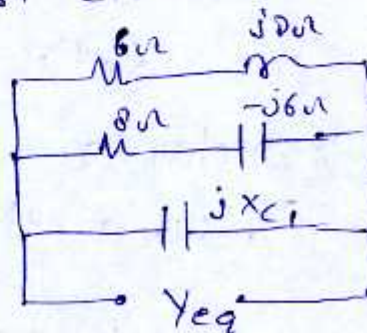 6Ω j8Ω
8Ω -j6Ω
jXc
Yeq